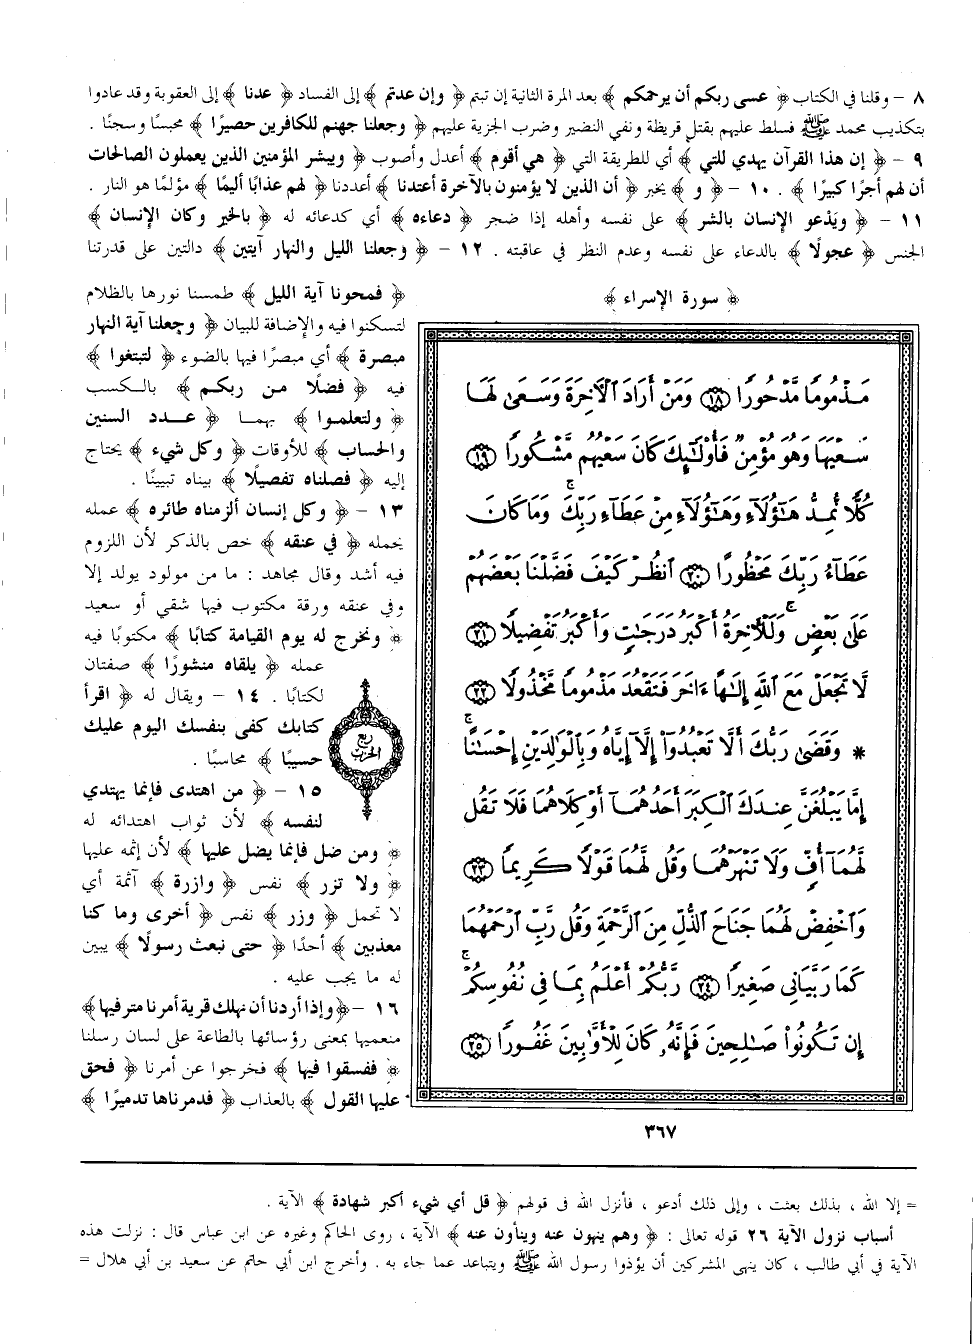 ٨ – وقلنا في الكتاب ﴿ عسى ربكم أن يرحمكم ﴾ بعد المرة الثانية إن تبتم ﴿ وإن عدتم ﴾ إلى الفساد ﴿ عدنا ﴾ إلى العقوبة وقد عادوا
بتكذيب محمد ﷺ فسلط عليهم بقتل قريظة ونفي النضير وضرب الجزية عليهم ﴿ وجعلنا جهنم للكافرين حصيرًا ﴾ محبسًا وسجنًا .
٩ – ﴿ إن هذا القرآن يهدي للتي ﴾ أي للطريقة التي ﴿ هي أقوم ﴾ أعدل وأصوب ﴿ ويبشر المؤمنين الذين يعملون الصالحات
أن لهم أجرًا كبيرًا ﴾ . ١٠ – ﴿ و ﴾ يخبر ﴿ أن الذين لا يؤمنون بالآخرة أعتدنا ﴾ أعددنا ﴿ لهم عذابًا أليمًا ﴾ مؤلمًا هو النار .
١١ – ﴿ ويَدْعو الإنسان بالشر ﴾ على نفسه وأهله إذا ضجر ﴿ دعاءه ﴾ أي كدعائه له ﴿ بالخير وكان الإنسان ﴾
الجنس ﴿ عجولًا ﴾ بالدعاء على نفسه وعدم النظر في عاقبته . ١٢ – ﴿ وجعلنا الليل والنهار آيتين ﴾ دالتين على قدرتنا
﴿ فمحونا آية الليل ﴾ طمسنا نورها بالظلام
لتسكنوا فيه والإضافة للبيان ﴿ وجعلنا آية النهار
مبصرة ﴾ أي مبصرًا فيها بالضوء ﴿ لتبتغوا ﴾
فيه ﴿ فضلًا من ربكم ﴾ بالكسب
﴿ ولتعلموا ﴾ بهما ﴿ عدد السنين
والحساب ﴾ للأوقات ﴿ وكل شيء ﴾ يحتاج
إليه ﴿ فصلناه تفصيلًا ﴾ بيناه تبيينًا .
١٣ – ﴿ وكل إنسان ألزمناه طائره ﴾ عمله
يحمله ﴿ في عنقه ﴾ خص بالذكر لأن اللزوم
فيه أشد وقال مجاهد : ما من مولود يولد إلا
وفي عنقه ورقة مكتوب فيها شقي أو سعيد
﴿ ونخرج له يوم القيامة كتابًا ﴾ مكتوبًا فيه
عمله ﴿ يلقاه منشورًا ﴾ صفتان
لكتابًا . ١٤ – ويقال له ﴿ اقرأ
كتابك كفى بنفسك اليوم عليك
حسيبًا ﴾ محاسبًا .
١٥ – ﴿ من اهتدى فإنما يهتدي
لنفسه ﴾ لأن ثواب اهتدائه له
﴿ ومن ضل فإنما يضل عليها ﴾ لأن إثمه عليها
﴿ ولا تزر ﴾ نفس ﴿ وازرة ﴾ آثمة أي
لا تحمل ﴿ وزر ﴾ نفس ﴿ أخرى وما كنا
معذبين ﴾ أحدًا ﴿ حتى نبعث رسولًا ﴾ يبين
له ما يجب عليه .
١٦ – ﴿ وإذا أردنا أن نهلك قرية أمرنا مترفيها ﴾
منعميها بمعنى رؤسائها بالطاعة على لسان رسلنا
﴿ ففسقوا فيها ﴾ فخرجوا عن أمرنا ﴿ فحق
عليها القول ﴾ بالعذاب ﴿ فدمرناها تدميرًا ﴾
ربع
الحزب
﴿ سورة الإسراء ﴾
مَذْمُومًا مَّدْحُورًا ١٨ وَمَنْ أَرَادَ ٱلْآخِرَةَ وَسَعَىٰ لَهَا
سَعْيَهَا وَهُوَ مُؤْمِنٌ فَأُو۟لَٰٓئِكَ كَانَ سَعْيُهُم مَّشْكُورًا ١٩
كُلًّا نُّمِدُّ هَٰٓؤُلَآءِ وَهَٰٓؤُلَآءِ مِنْ عَطَآءِ رَبِّكَ ۚ وَمَا كَانَ
عَطَآءُ رَبِّكَ مَحْظُورًا ٢٠ ٱنظُرْ كَيْفَ فَضَّلْنَا بَعْضَهُمْ
عَلَىٰ بَعْضٍ ۚ وَلَلْآخِرَةُ أَكْبَرُ دَرَجَٰتٍ وَأَكْبَرُ تَفْضِيلًا ٢١
لَّا تَجْعَلْ مَعَ ٱللَّهِ إِلَٰهًا ءَاخَرَ فَتَقْعُدَ مَذْمُومًا مَّخْذُولًا ٢٢
* وَقَضَىٰ رَبُّكَ أَلَّا تَعْبُدُوٓا۟ إِلَّآ إِيَّاهُ وَبِٱلْوَٰلِدَيْنِ إِحْسَٰنًا ۚ
إِمَّا يَبْلُغَنَّ عِندَكَ ٱلْكِبَرَ أَحَدُهُمَآ أَوْ كِلَاهُمَا فَلَا تَقُل
لَّهُمَآ أُفٍّ وَلَا تَنْهَرْهُمَا وَقُل لَّهُمَا قَوْلًا كَرِيمًا ٢٣
وَٱخْفِضْ لَهُمَا جَنَاحَ ٱلذُّلِّ مِنَ ٱلرَّحْمَةِ وَقُل رَّبِّ ٱرْحَمْهُمَا
كَمَا رَبَّيَانِى صَغِيرًا ٢٤ رَّبُّكُمْ أَعْلَمُ بِمَا فِى نُفُوسِكُمْ ۚ
إِن تَكُونُوا۟ صَٰلِحِينَ فَإِنَّهُۥ كَانَ لِلْأَوَّٰبِينَ غَفُورًا ٢٥
٣٦٧
= إلا الله ، بذلك بعثت ، وإلى ذلك أدعو ، فأنزل الله في قولهم ﴿ قل أي شيء أكبر شهادة ﴾ الآية .
أسباب نزول الآية ٢٦ قوله تعالى : ﴿ وهم ينهون عنه وينأون عنه ﴾ الآية ، روى الحاكم وغيره عن ابن عباس قال : نزلت هذه
الآية في أبي طالب ، كان ينهى المشركين أن يؤذوا رسول الله ﷺ ويتباعد عما جاء به . وأخرج ابن أبي حاتم عن سعيد بن أبي هلال =